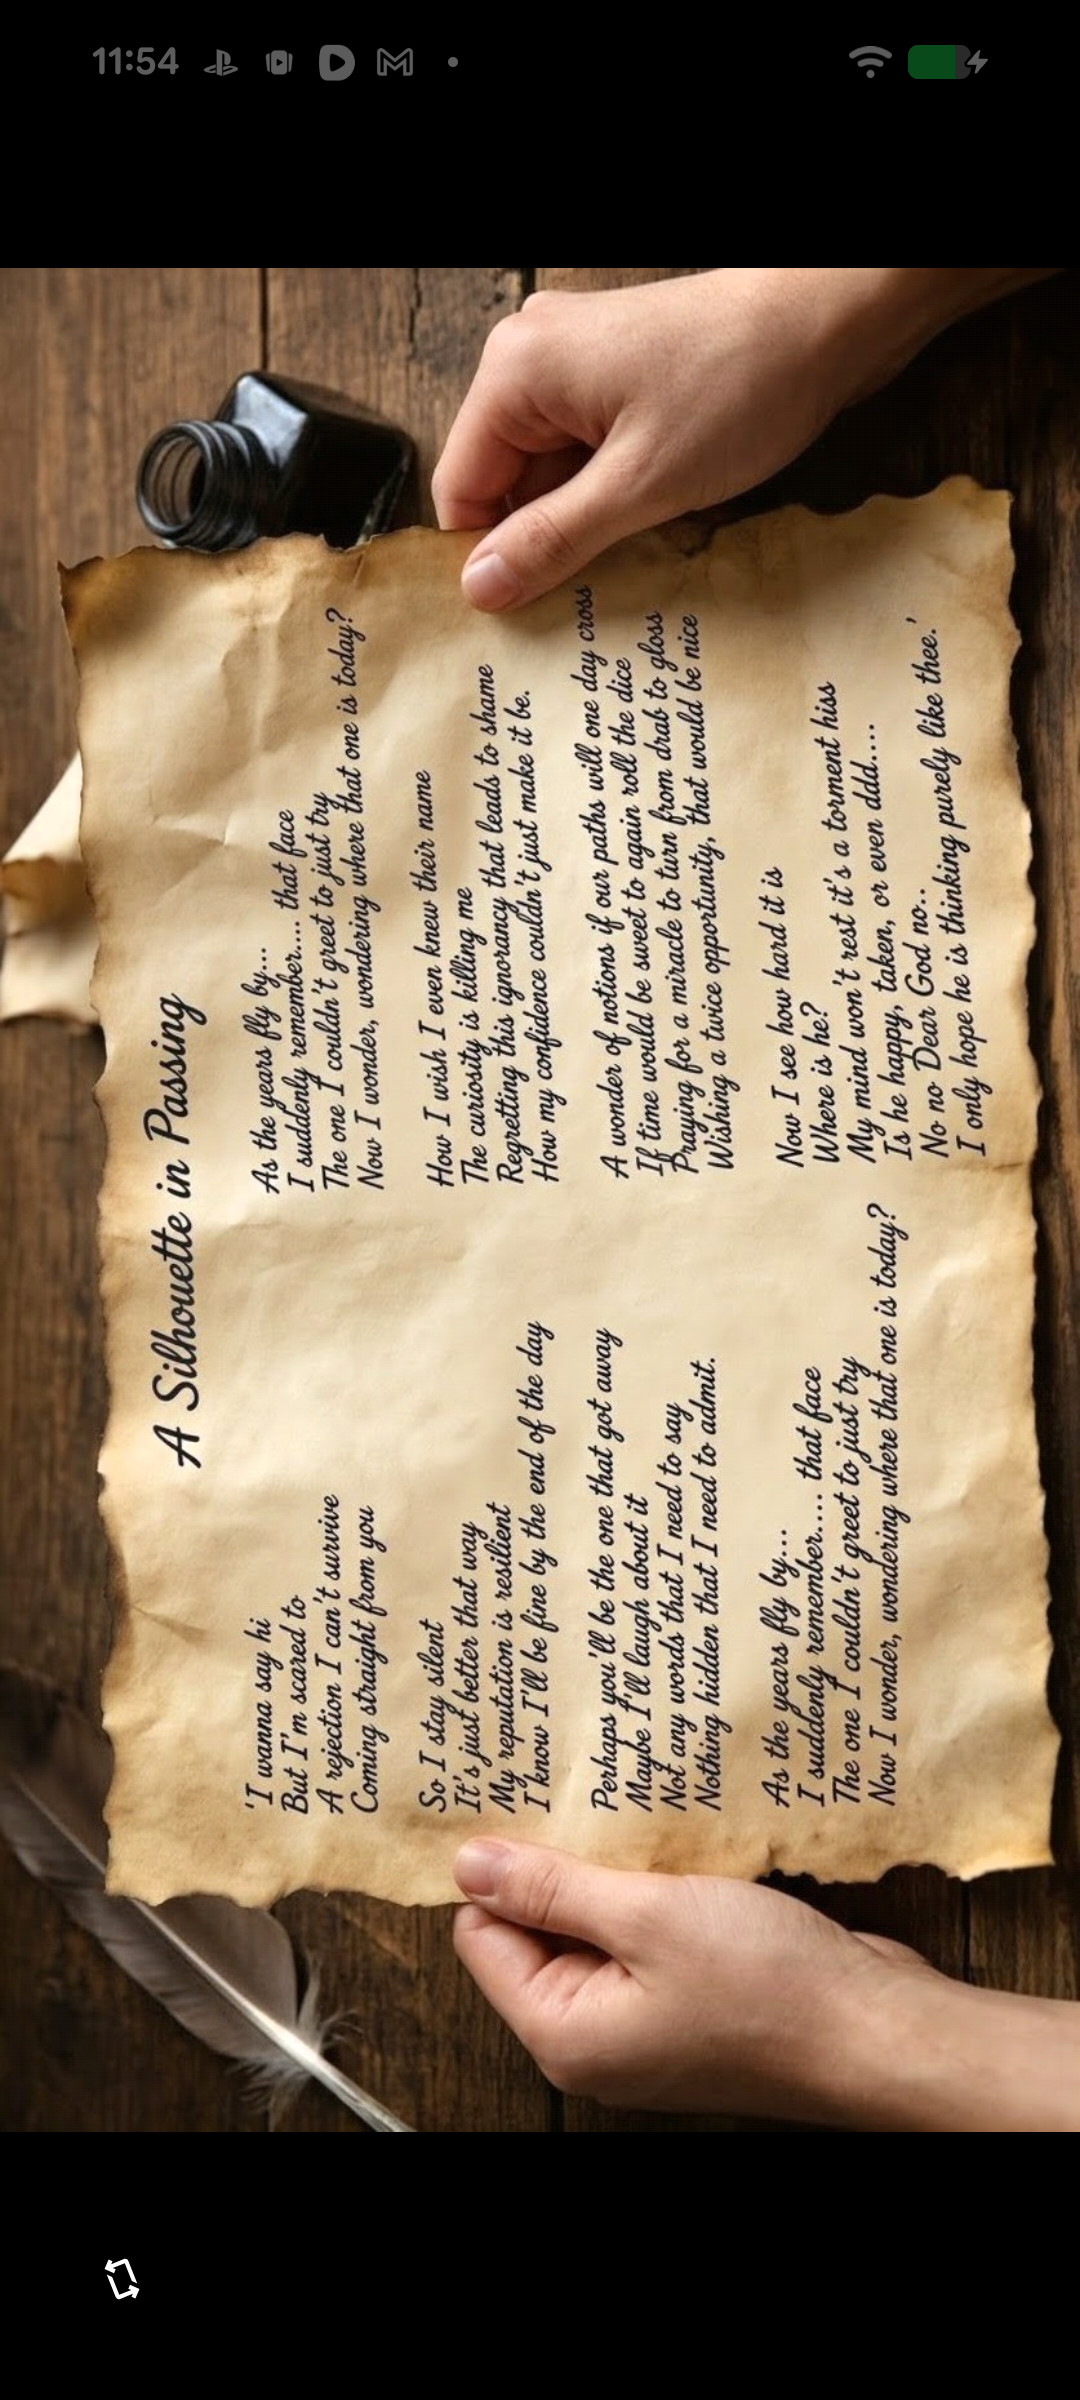 11:54
A Silhouette in Passing
'I wanna say hi
But I'm scared to
A rejection I can't survive
Coming straight from you
So I stay silent
It's just better that way
My reputation is resilient
I know I'll be fine by the end of the day
Perhaps you'll be the one that got away
Maybe I'll laugh about it
Not any words that I need to say
Nothing hidden that I need to admit.
As the years fly by...
I suddenly remember.... that face
The one I couldn't greet to just try
Now I wonder, wondering where that one is today?
As the years fly by...
I suddenly remember.... that face
The one I couldn't greet to just try
Now I wonder, wondering where that one is today?
How I wish I even knew their name
The curiosity is killing me
Regretting this ignorancy that leads to shame
How my confidence couldn't just make it be.
A wonder of notions if our paths will one day cross
If time would be sweet to again roll the dice
Praying for a miracle to turn from drab to gloss
Wishing a twice opportunity, that would be nice
Now I see how hard it is
Where is he?
My mind won't rest it's a torment hiss
Is he happy, taken, or even ddd....
No no Dear God no..
I only hope he is thinking purely like thee.'